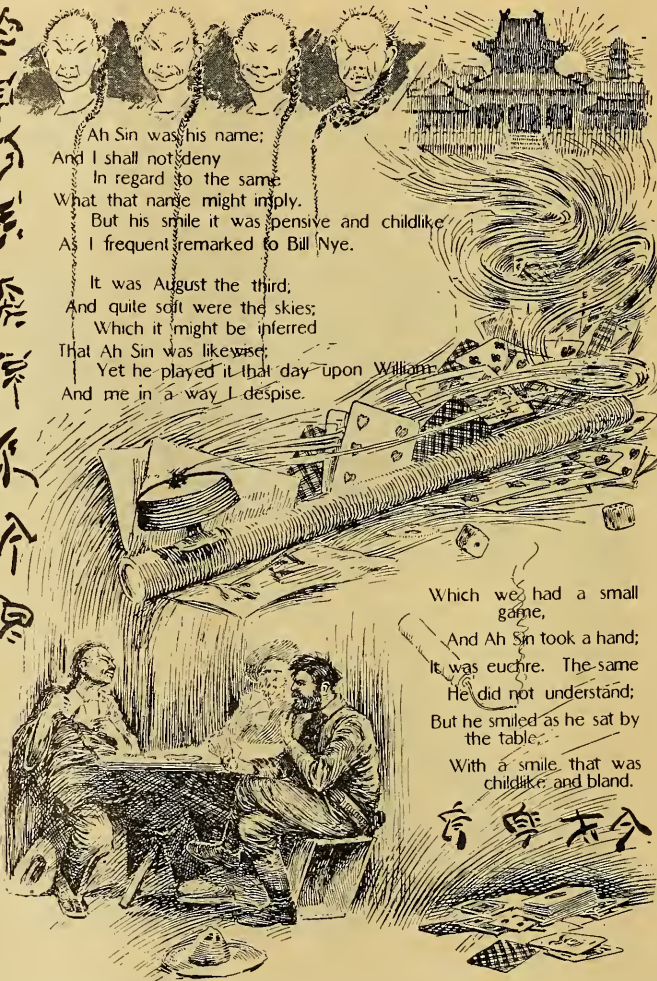 Ah Sin was his name;
And I shall not deny
In regard to the same
What that name might imply.
But his smile it was pensive and childlike
As I frequent remarked to Bill Nye.
It was August the third;
And quite soft were the skies;
Which it might be inferred
That Ah Sin was likewise;
Yet he played it that day upon William
And me in a way I despise.
Which we had a small
game,
And Ah Sin took a hand;
It was euchre. The same
He did not understand;
But he smiled as he sat by
the table,
With a smile that was
childlike and bland.